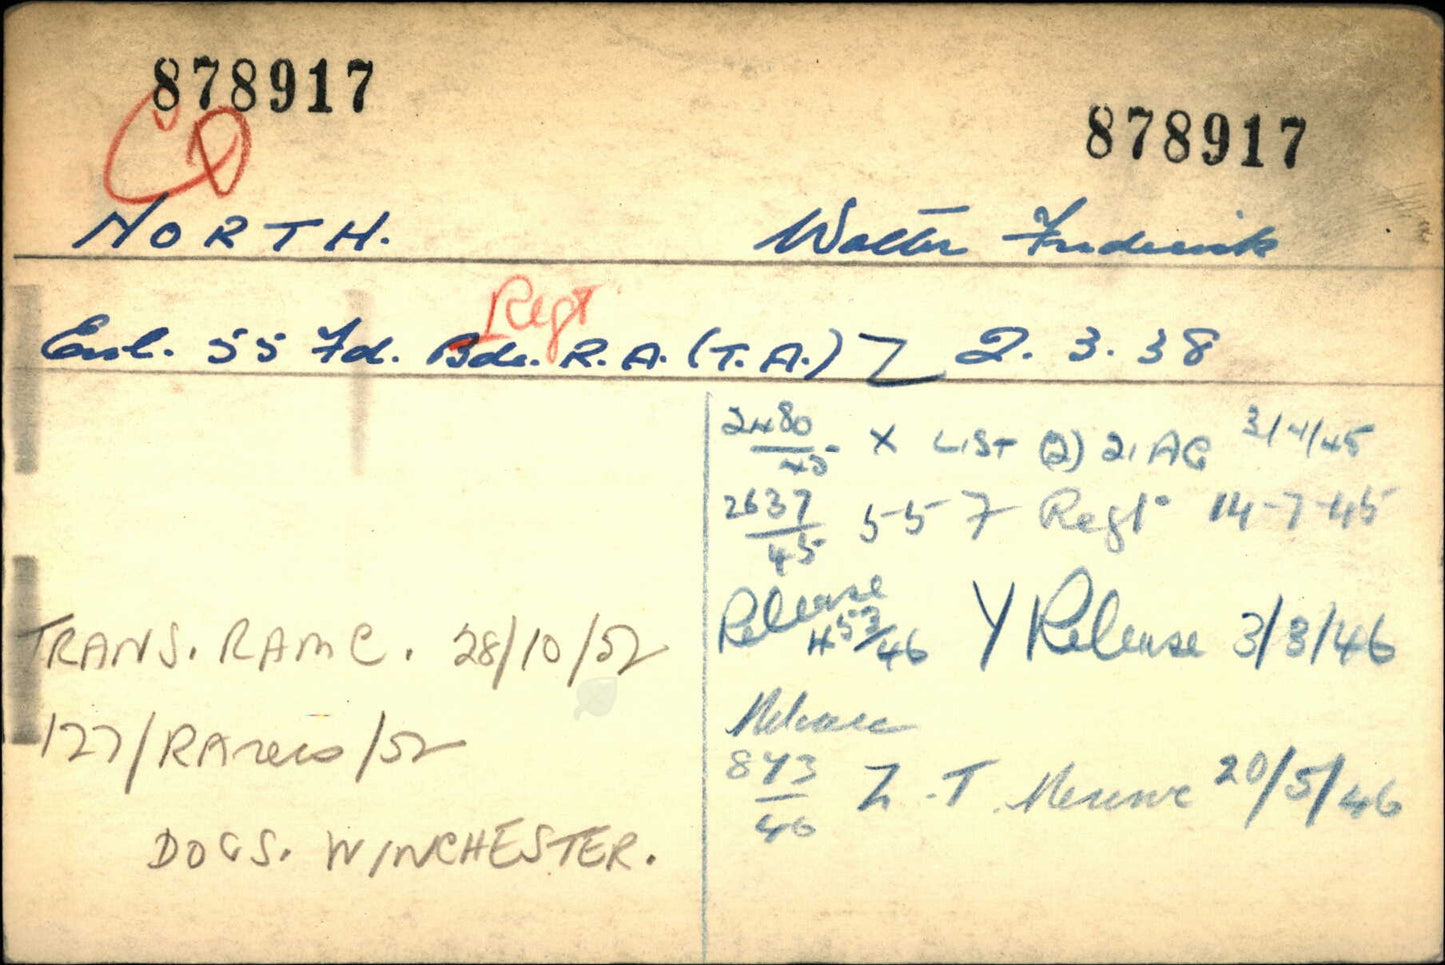 878917
878917
CD
NORTH. Walter Frederick
Regt
Enl. 55 Fd. Bde. R.A. (T.A.) 2.3.38
2480/45 X LIST (2) 21 AG 3/4/45
2637/45 55 F Regt 14-7-45
Release 453/46 Y Release 3/3/46
TRANS. RAMC. 28/10/52
Release
873/46 Z.T. Reserve 20/5/46
127/RA /52
DOCS. WINCHESTER.